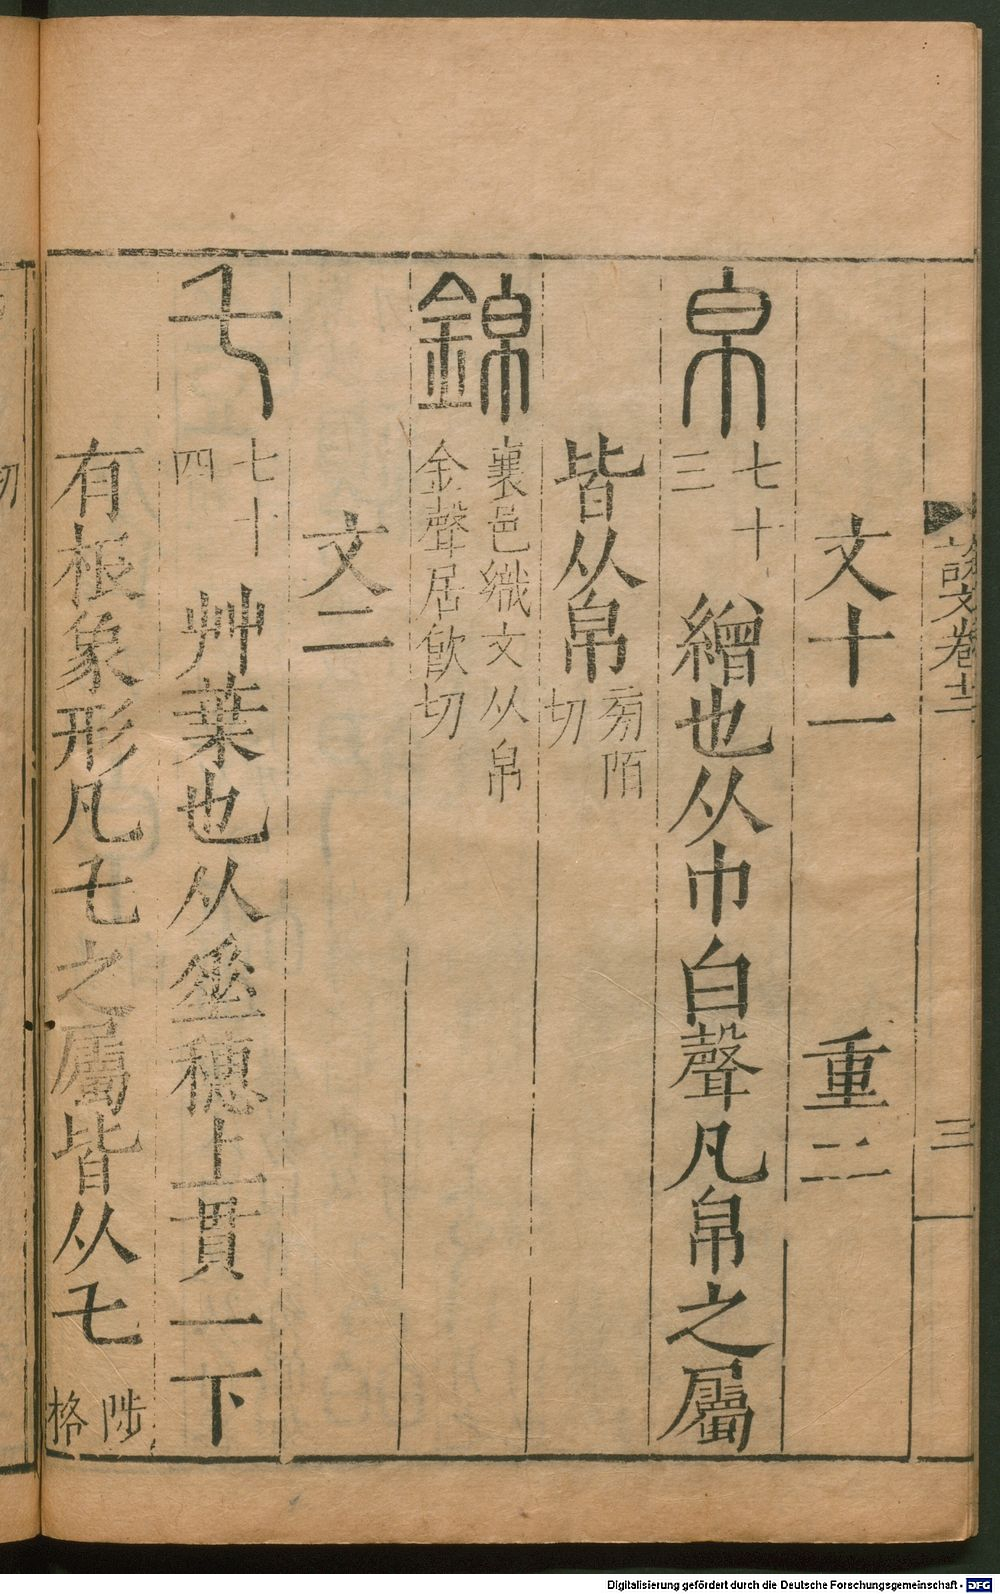 說文卷十二 三
文十一 重二
帛 七十三 繒也从巾白聲凡帛之屬
皆从帛 㫄陌切
錦 襄邑織文从帛
金聲居飮切
文二
乇 七十四 艸葉也从𠂹穗上貫一下
有根象形凡乇之屬皆从乇 陟格
切